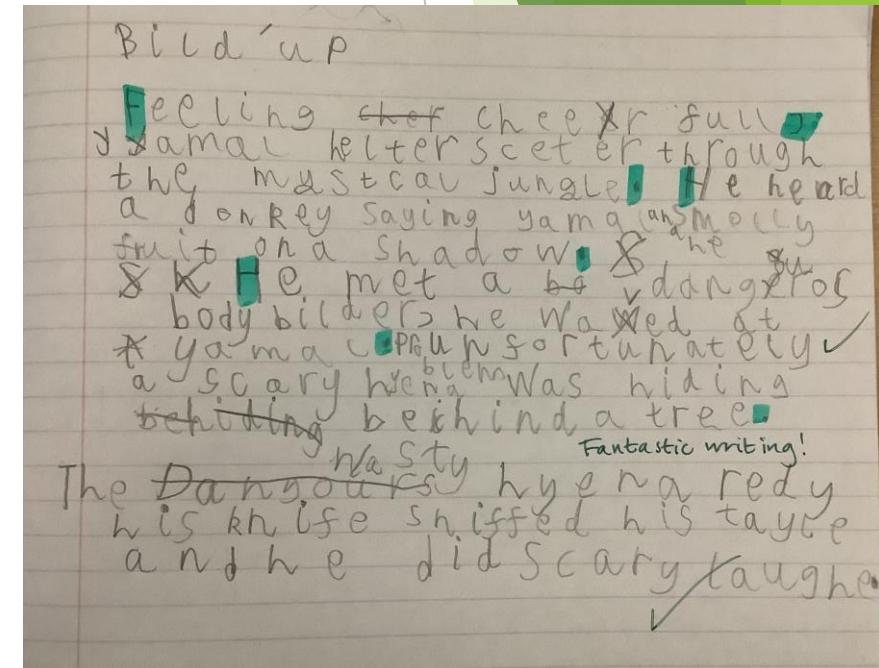 Bild'up
Feeling cheer full,
yamal helter sceter through
the mystcal jungle. He heard
a donkey saying yamal and molly
fruit on a shadow.
He met a dangeros
body bilder, he waved at
yamal. Unfortunately
problem
a scary hyena was hiding
behind a tree.
Fantastic writing!
nasty
The hyena redy
his knife sniffed his tayle
and he did scary laughe.